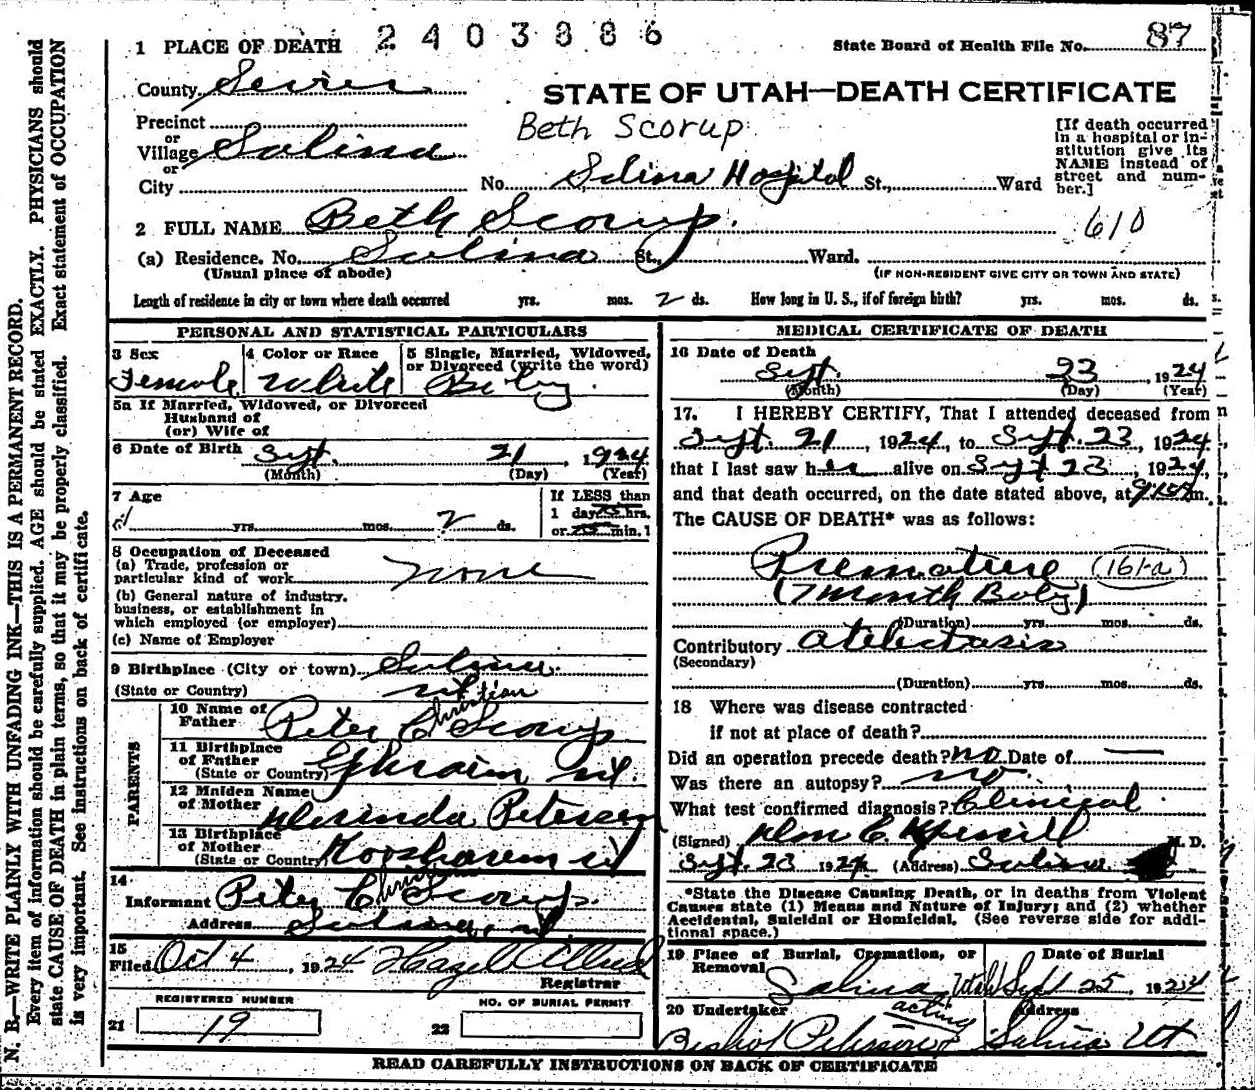 2403886
1 PLACE OF DEATH
State Board of Health File No. 87
County Sevier
STATE OF UTAH—DEATH CERTIFICATE
Precinct
or
Village Salina
or
City
Beth Scorup
No. Salina Hospital St., Ward
[If death occurred in a hospital or institution give its NAME instead of street and number.]
2 FULL NAME Beth Scorup.
610
(a) Residence. No. Salina St., Ward.
(Usual place of abode)
(IF NON-RESIDENT GIVE CITY OR TOWN AND STATE)
Length of residence in city or town where death occurred yrs. mos. 2 ds. How long in U. S., if of foreign birth? yrs. mos. ds.
PERSONAL AND STATISTICAL PARTICULARS
3 Sex
Female
4 Color or Race
White
5 Single, Married, Widowed, or Divorced (write the word)
Baby.
5a If Married, Widowed, or Divorced
Husband of
(or) Wife of
6 Date of Birth Sept. 21, 1924
(Month) (Day) (Year)
7 Age
yrs. mos. 2 ds.
If LESS than
1 day hrs.
or min.
8 Occupation of Deceased
(a) Trade, profession or
particular kind of work none
(b) General nature of industry,
business, or establishment in
which employed (or employer)
(c) Name of Employer
9 Birthplace (City or town) Salina
(State or Country) Ut
PARENTS
10 Name of
Father Peter Christian Scorup
11 Birthplace
of Father
(State or Country) Ephraim Ut.
12 Maiden Name
of Mother Petersen
13 Birthplace
of Mother
(State or Country) Koosharem Ut
14
Informant Peter Christian Scorup.
Address Salina, Ut.
15
Filed Oct 4, 1924 Hazel Allred
Registrar
REGISTERED NUMBER
21 19
NO. OF BURIAL PERMIT
22
MEDICAL CERTIFICATE OF DEATH
16 Date of Death
Sept. 23, 1924
(Month) (Day) (Year)
17. I HEREBY CERTIFY, That I attended deceased from
Sept. 21, 1924, to Sept. 23, 1924
that I last saw her alive on Sept 23, 1924,
and that death occurred, on the date stated above, at m.
The CAUSE OF DEATH* was as follows:
Premature (161-a)
(7 Month Baby)
(Duration) yrs. mos. ds.
Contributory Atelectasis
(Secondary)
(Duration) yrs. mos. ds.
18 Where was disease contracted
if not at place of death?
Did an operation precede death? no Date of —
Was there an autopsy? no.
What test confirmed diagnosis? Clinical.
(Signed) Wm E. M. D.
Sept. 23 1924 (Address) Salina.
*State the Disease Causing Death, or in deaths from Violent
Causes state (1) Means and Nature of Injury; and (2) whether
Accidental, Suicidal or Homicidal. (See reverse side for addi-
tional space.)
19 Place of Burial, Cremation, or
Removal
Salina Utah
Date of Burial
Sept 25, 1924
20 Undertaker
acting
Bishop
Address
Salina Ut
READ CAREFULLY INSTRUCTIONS ON BACK OF CERTIFICATE
N. B.—WRITE PLAINLY WITH UNFADING INK—THIS IS A PERMANENT RECORD.
Every item of information should be carefully supplied. AGE should be stated EXACTLY. PHYSICIANS should
state CAUSE OF DEATH in plain terms, so that it may be properly classified. Exact statement of OCCUPATION
is very important. See instructions on back of certificate.